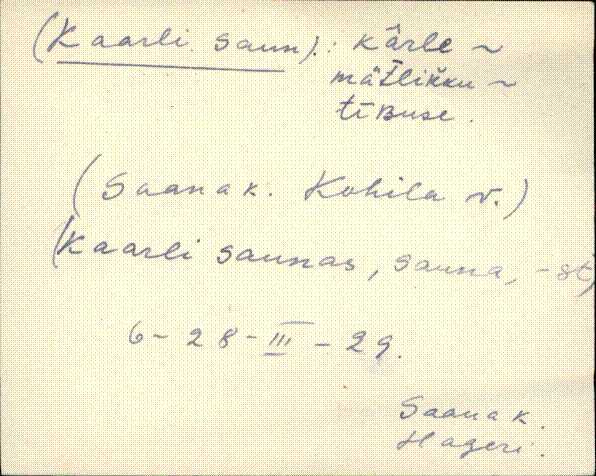 (Kaarli saun).: kārle ~
mätlikku ~
tīʙuse.
(Saanak. Kohila v.)
(Kaarli saunas, sauna, -st)
6-28-III-29.
Saanak.
Hageri.